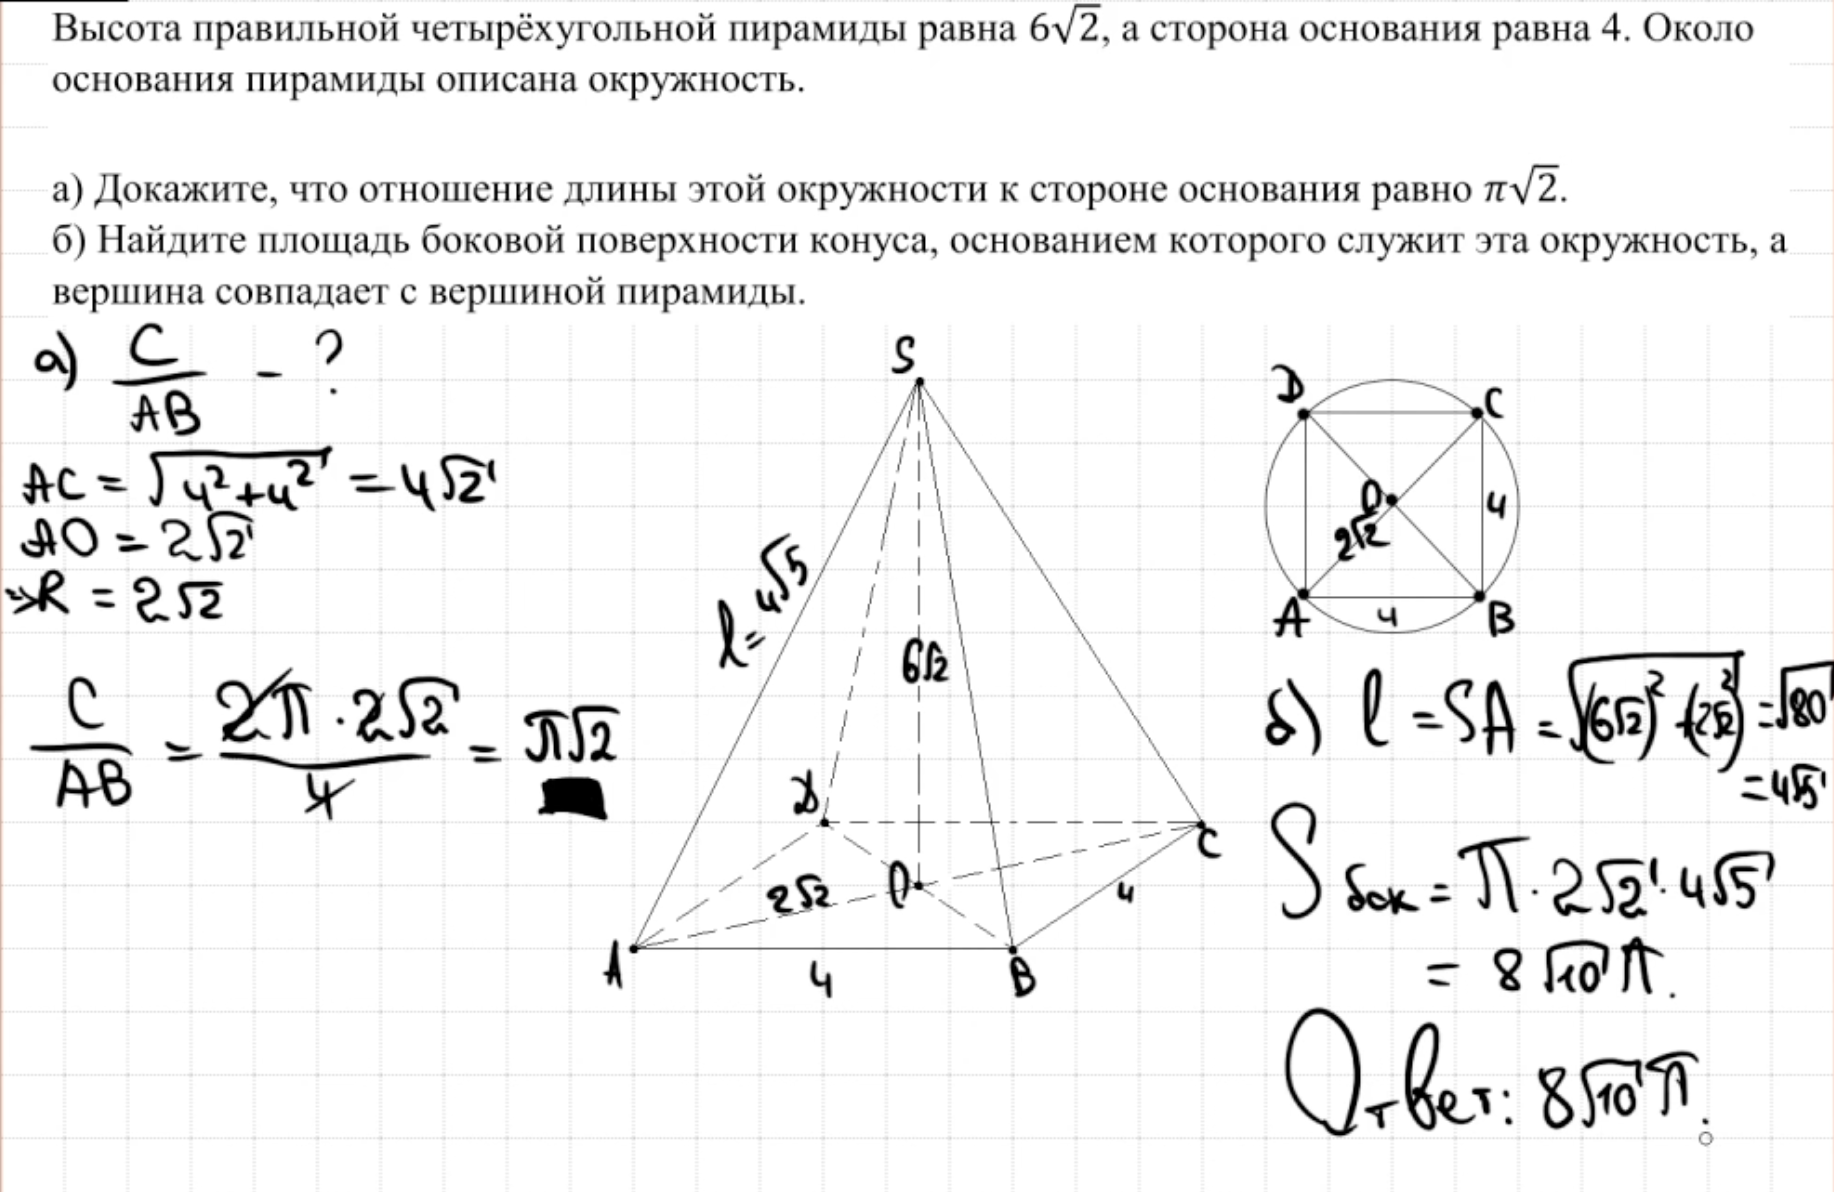 Высота правильной четырёхугольной пирамиды равна 6√2, а сторона основания равна 4. Около
основания пирамиды описана окружность.
а) Докажите, что отношение длины этой окружности к стороне основания равно π√2.
б) Найдите площадь боковой поверхности конуса, основанием которого служит эта окружность, а
вершина совпадает с вершиной пирамиды.
а) C/AB - ?
AC = √(4²+4²) = 4√2
AO = 2√2
⇒ R = 2√2
C/AB = (2π · 2√2)/4 = π√2
S
l = 4√5
6√2
D
O
C
2√2
4
A
4
B
D
C
O
2√2
4
A
4
B
б) l = SA = √((6√2)² + (2√2)²) = √80
= 4√5
Sбок = π · 2√2 · 4√5
= 8√10 π.
Ответ: 8√10 π.